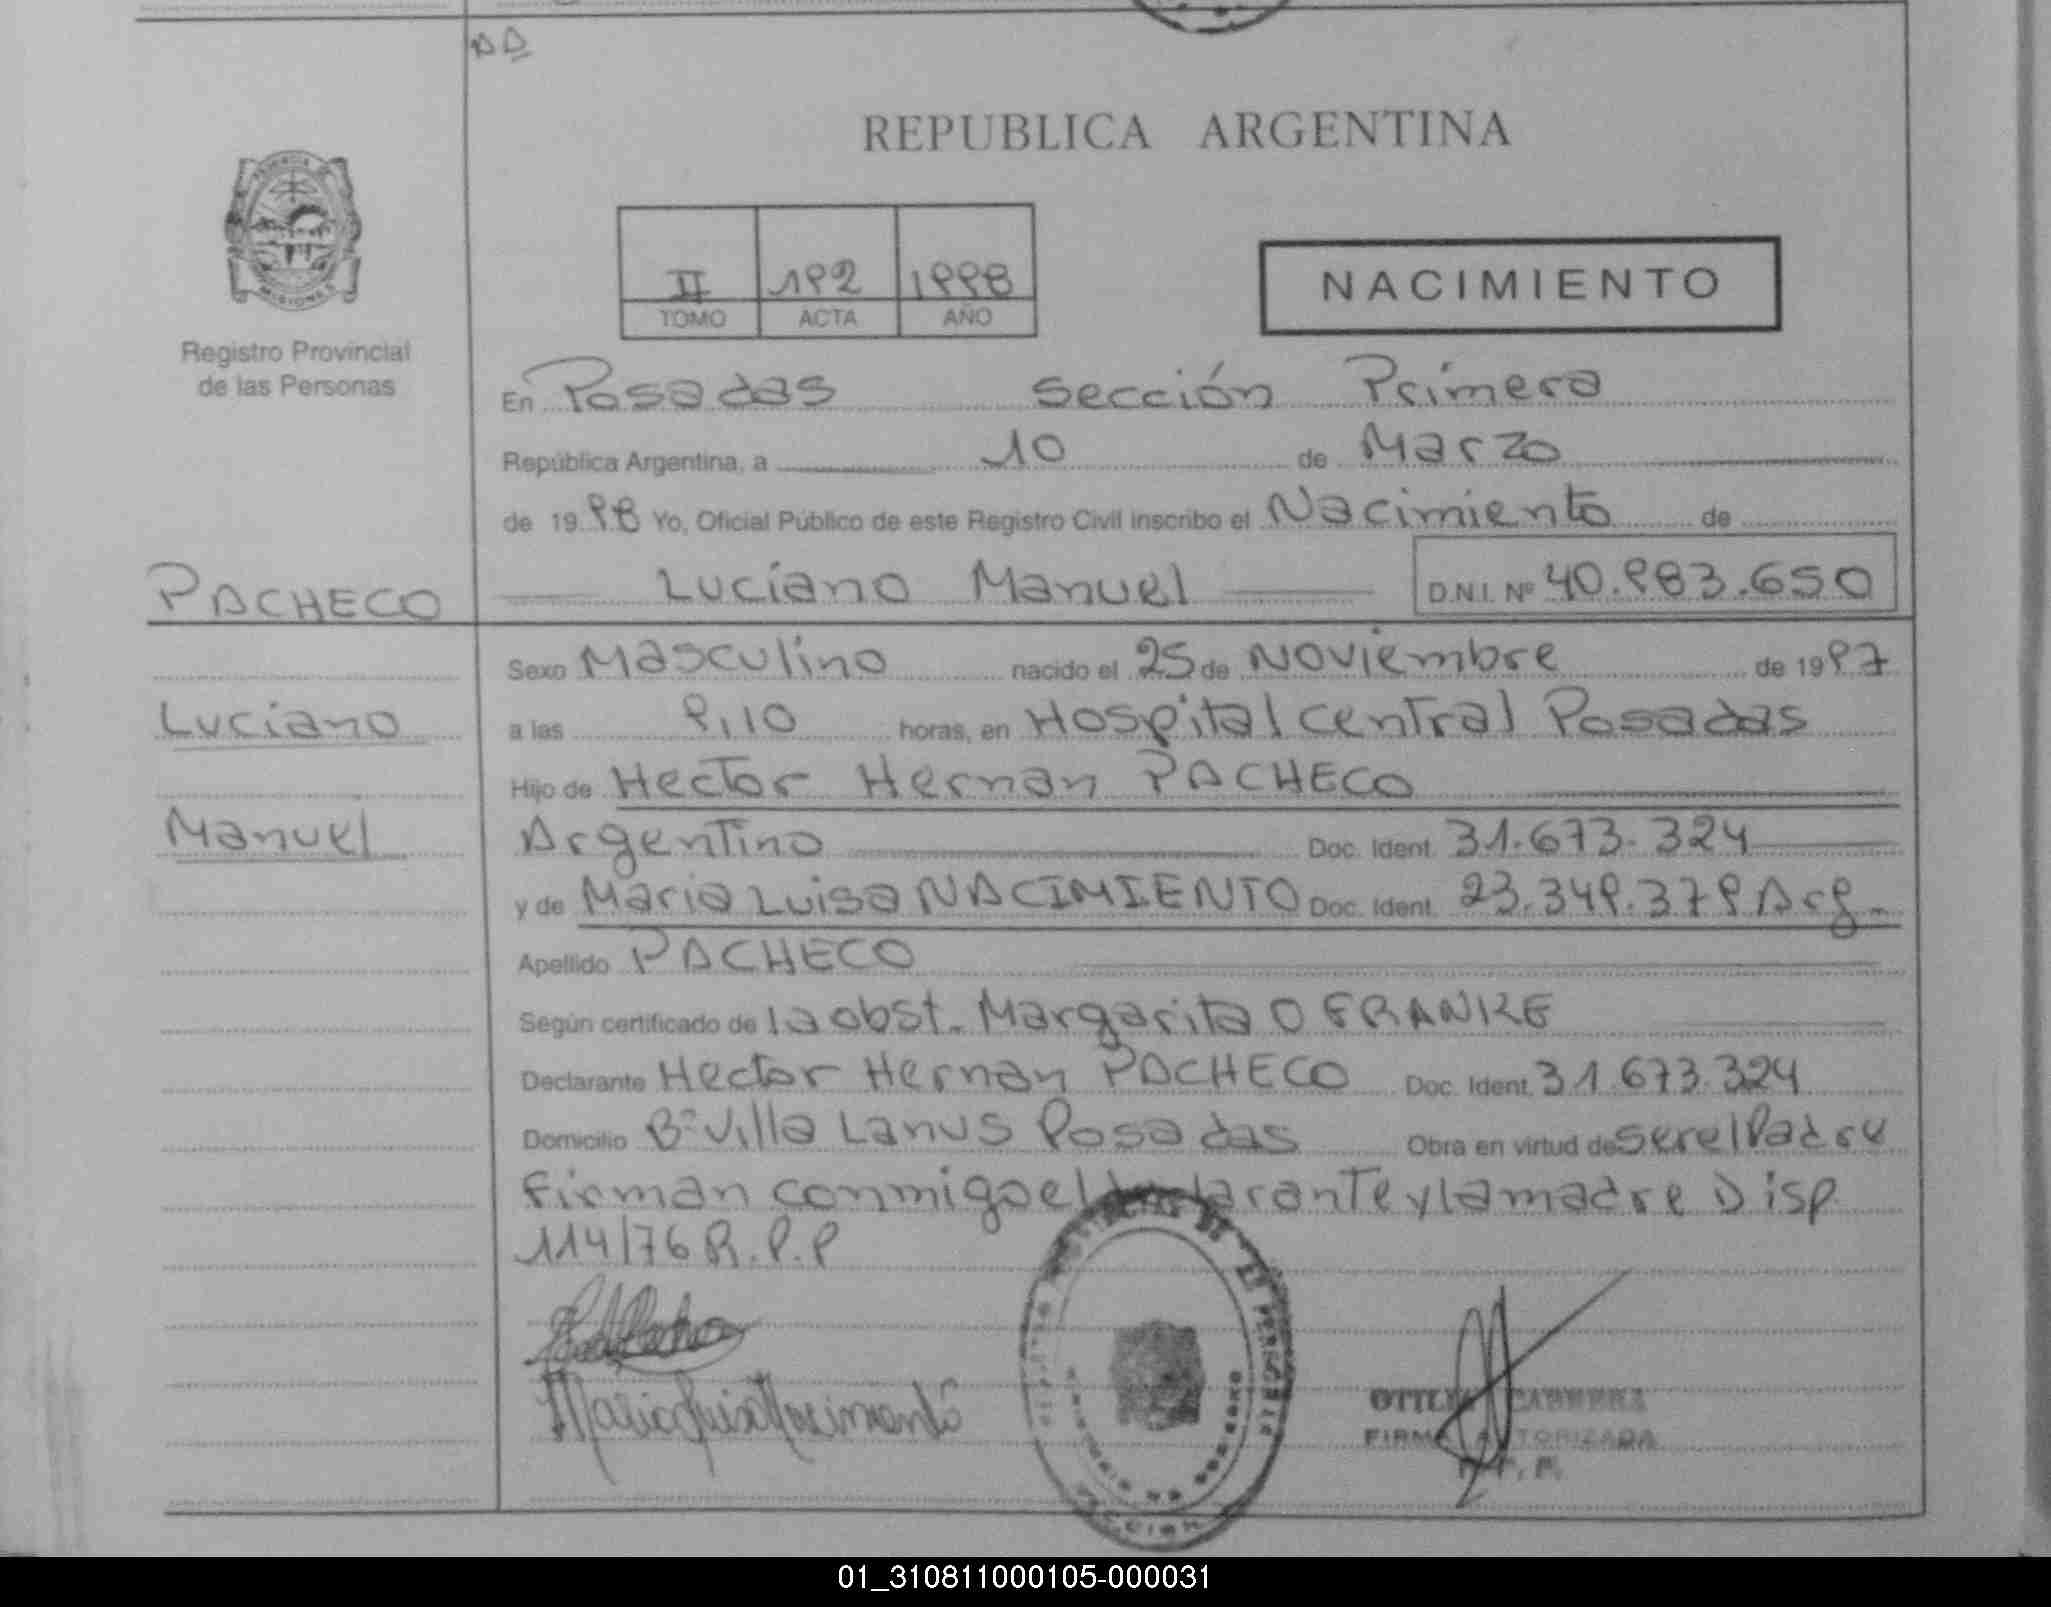 DD
REPUBLICA ARGENTINA
II 192 1998
TOMO ACTA AÑO
NACIMIENTO
Registro Provincial
de las Personas
En Posadas sección Primera
República Argentina, a 10 de Marzo
de 1998 Yo, Oficial Público de este Registro Civil inscribo el Nacimiento de
PACHECO
Luciano Manuel D.N.I. Nº 40.983.650
Sexo Masculino nacido el 25 de Noviembre de 1997
Luciano
a las 9,10 horas, en Hospital Central Posadas
Hijo de Hector Hernan PACHECO
Manuel
Argentino Doc. Ident. 31.673.324
y de Maria Luisa NACIMIENTO Doc. Ident. 23.349.379 Arg.
Apellido PACHECO
Según certificado de la obst. Margarita O FRANKE
Declarante Hector Hernan PACHECO Doc. Ident. 31.673.324
Domicilio Bº Villa Lanus Posadas Obra en virtud de ser el Padre
Firman conmigo el declarante y la madre Disp.
114/76 R.P.P
Maria Luisa Nacimiento
CABRERA
FIRMA AUTORIZADA
01_310811000105-000031